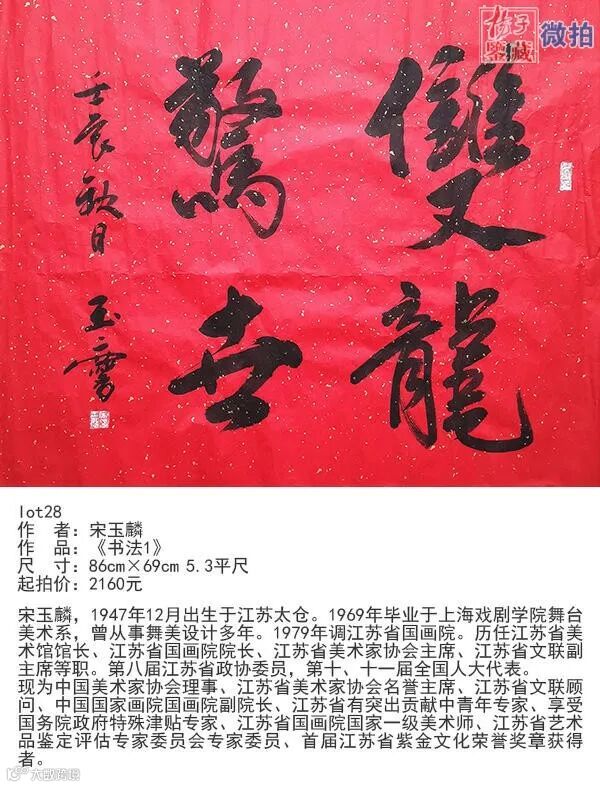 揚子
鑒藏
微拍
雙龍
驚世
壬辰秋日 玉
lot28
作 者：宋玉麟
作 品：《书法1》
尺 寸：86cm×69cm 5.3平尺
起拍价：2160元
宋玉麟，1947年12月出生于江苏太仓。1969年毕业于上海戏剧学院舞台
美术系，曾从事舞美设计多年。1979年调江苏省国画院。历任江苏省美
术馆馆长、江苏省国画院院长、江苏省美术家协会主席、江苏省文联副
主席等职。第八届江苏省政协委员，第十、十一届全国人大代表。
现为中国美术家协会理事、江苏省美术家协会名誉主席、江苏省文联顾
问、中国国家画院国画院副院长、江苏省有突出贡献中青年专家、享受
国务院政府特殊津贴专家、江苏省国画院国家一级美术师、江苏省艺术
品鉴定评估专家委员会专家委员、首届江苏省紫金文化荣誉奖章获得
者。
大数跨境